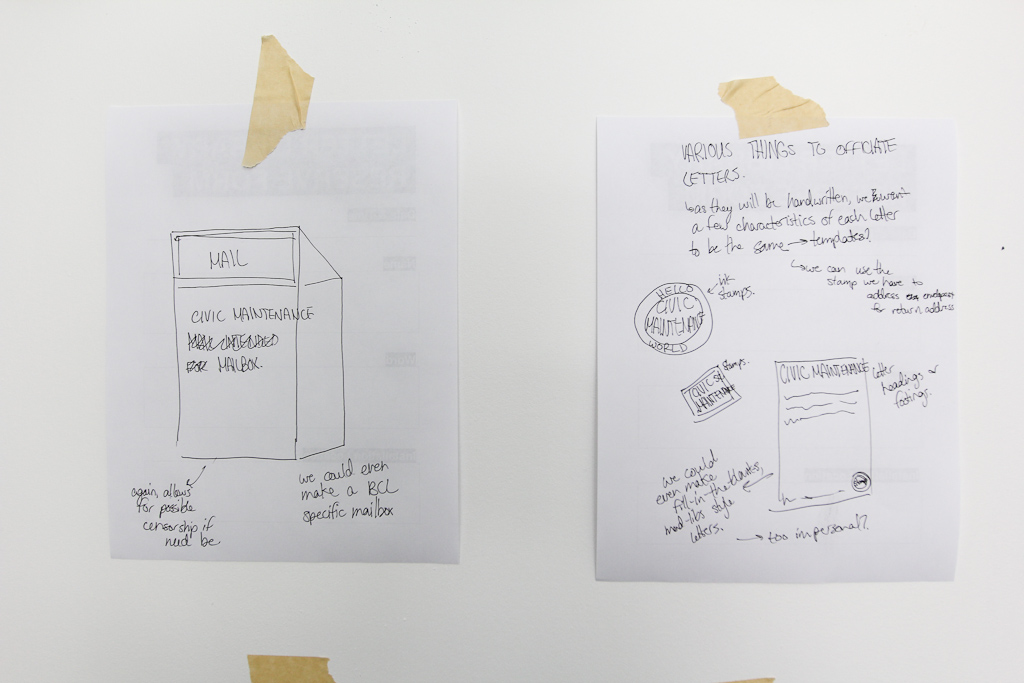 MAIL
CIVIC MAINTENANCE
MAILBOX.
again, allows
for possible
censorship if
need be
we could even
make a BCL
specific mailbox
VARIOUS THINGS TO OFFICIATE
LETTERS.
as they will be handwritten, we want
a few characteristics of each letter
to be the same → templates?
we can use the
stamp we have to
address envelopes
for return address
ink
stamps.
HELLO
CIVIC
MAINTENANCE
WORLD
stamps.
CIVIC
MAINTENANCE
CIVIC MAINTENANCE
letter
headings or
footings.
we could
even make
fill-in-the-blanks,
mad-libs style
letters.
→ too impersonal?